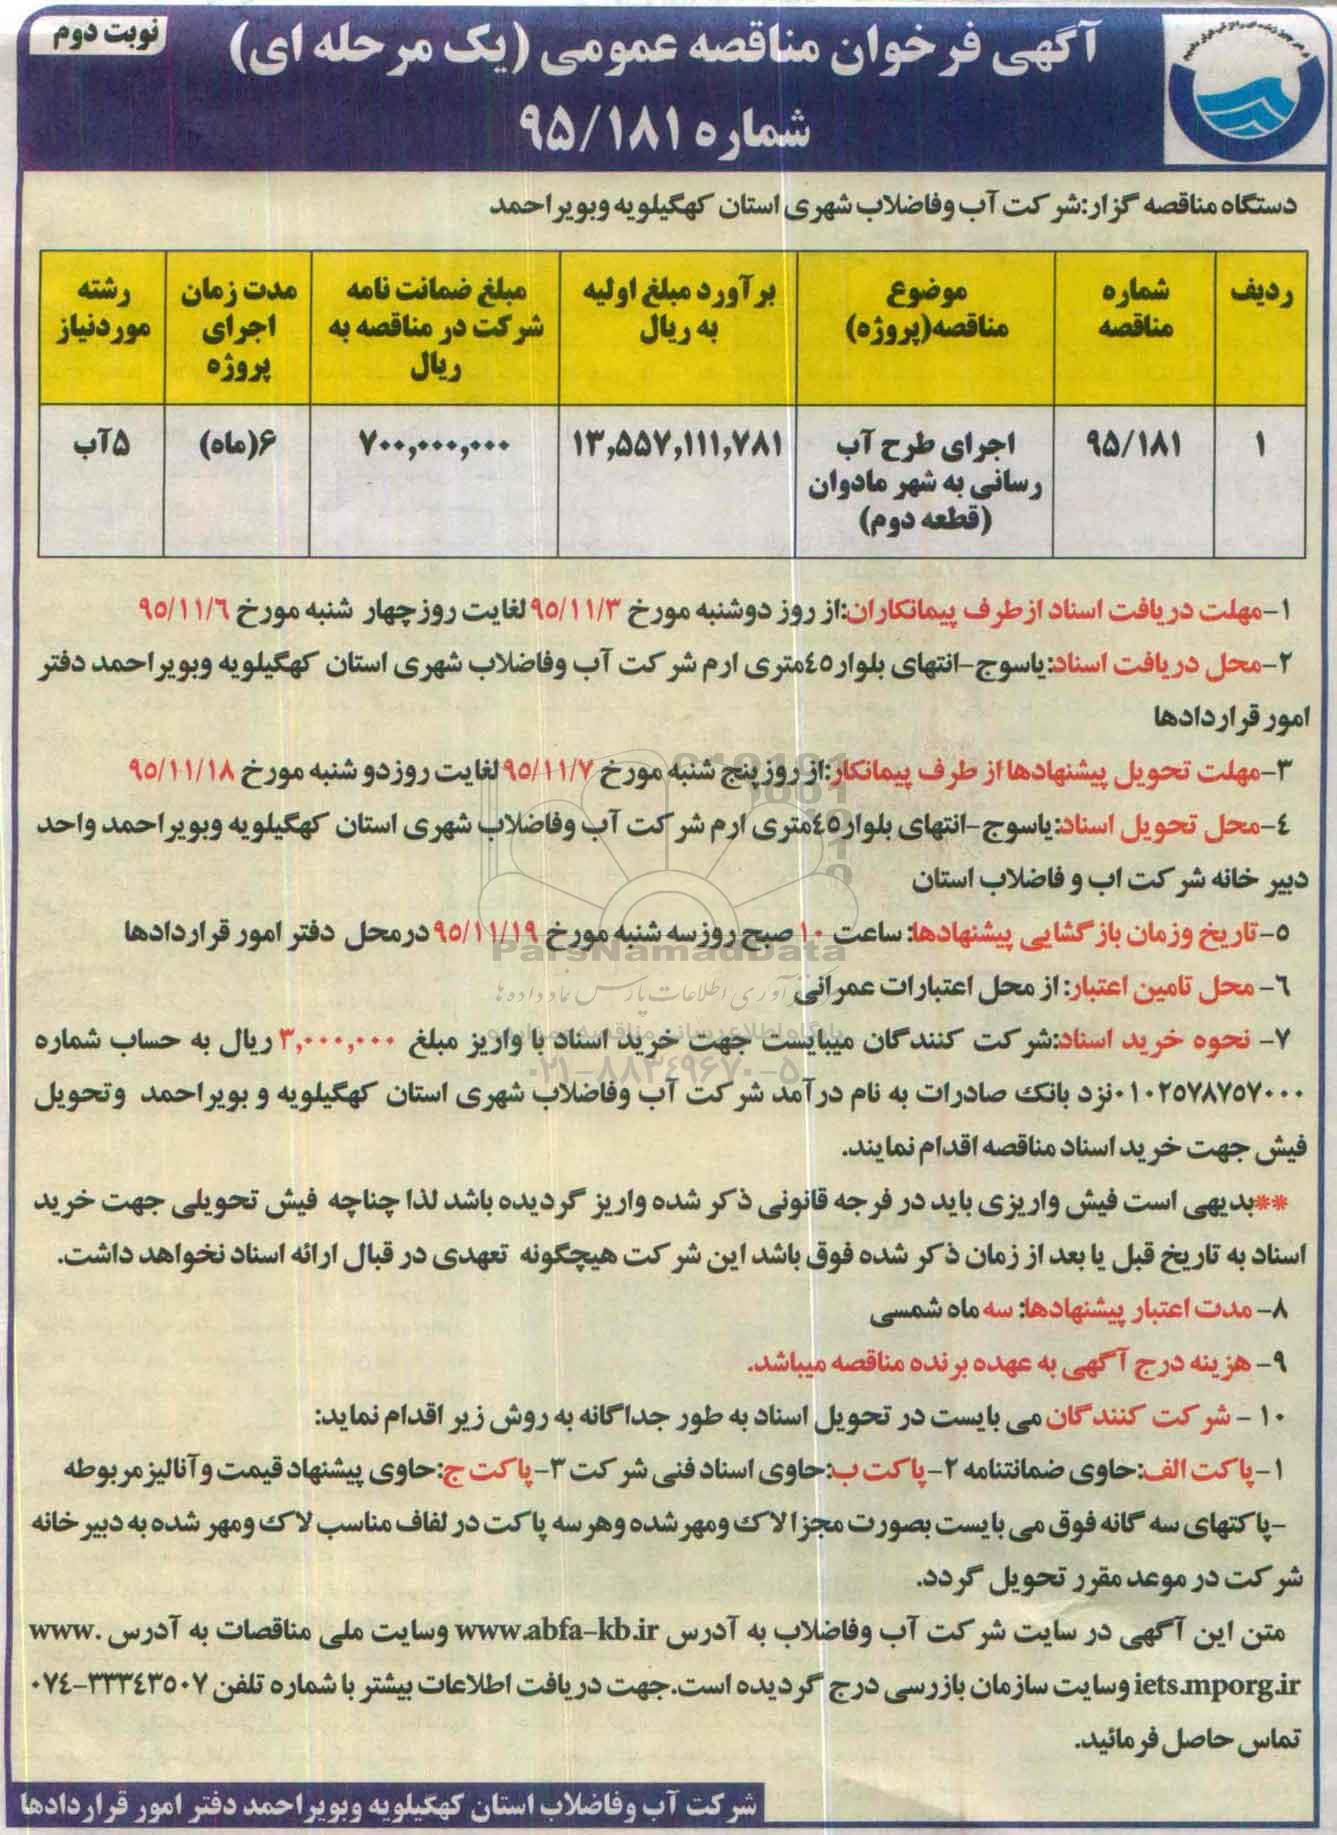 نوبت دوم
آگهی فرخوان مناقصه عمومی (یک مرحله ای)
شماره ۹۵/۱۸۱
دستگاه مناقصه گزار:شرکت آب وفاضلاب شهری استان کهگیلویه وبویراحمد
ردیف
شماره مناقصه
موضوع مناقصه(پروژه)
برآورد مبلغ اولیه به ریال
مبلغ ضمانت نامه شرکت در مناقصه به ریال
مدت زمان اجرای پروژه
رشته موردنیاز
۱
۹۵/۱۸۱
اجرای طرح آب رسانی به شهر مادوان (قطعه دوم)
۱۳,۵۵۷,۱۱۱,۷۸۱
۷۰۰,۰۰۰,۰۰۰
۶(ماه)
۵آب
۱-مهلت دریافت اسناد ازطرف پیمانکاران:از روز دوشنبه مورخ ۹۵/۱۱/۳ لغایت روزچهار شنبه مورخ ۹۵/۱۱/۶
۲-محل دریافت اسناد:یاسوج-انتهای بلوار۴۵متری ارم شرکت آب وفاضلاب شهری استان کهگیلویه وبویراحمد دفتر
امور قراردادها
۳-مهلت تحویل پیشنهادها از طرف پیمانکار:از روز پنج شنبه مورخ ۹۵/۱۱/۷ لغایت روزدو شنبه مورخ ۹۵/۱۱/۱۸
۴-محل تحویل اسناد:یاسوج-انتهای بلوار۴۵متری ارم شرکت آب وفاضلاب شهری استان کهگیلویه وبویراحمد واحد
دبیر خانه شرکت اب و فاضلاب استان
۵-تاریخ وزمان بازگشایی پیشنهادها: ساعت ۱۰ صبح روزسه شنبه مورخ ۹۵/۱۱/۱۹ درمحل دفتر امور قراردادها
۶- محل تامین اعتبار: از محل اعتبارات عمرانی
۷- نحوه خرید اسناد:شرکت کنندگان میبایست جهت خرید اسناد با واریز مبلغ ۳,۰۰۰,۰۰۰ ریال به حساب شماره
۰۱۰۲۵۷۸۷۵۷۰۰۰نزد بانک صادرات به نام درآمد شرکت آب وفاضلاب شهری استان کهگیلویه و بویراحمد وتحویل
فیش جهت خرید اسناد مناقصه اقدام نمایند.
**بدیهی است فیش واریزی باید در فرجه قانونی ذکر شده واریز گردیده باشد لذا چناچه فیش تحویلی جهت خرید
اسناد به تاریخ قبل یا بعد از زمان ذکر شده فوق باشد این شرکت هیچگونه تعهدی در قبال ارائه اسناد نخواهد داشت.
۸- مدت اعتبار پیشنهادها: سه ماه شمسی
۹- هزینه درج آگهی به عهده برنده مناقصه میباشد.
۱۰- شرکت کنندگان می بایست در تحویل اسناد به طور جداگانه به روش زیر اقدام نماید:
۱-پاکت الف:حاوی ضمانتنامه ۲-پاکت ب:حاوی اسناد فنی شرکت ۳-پاکت ج:حاوی پیشنهاد قیمت وآنالیزمربوطه
-پاکتهای سه گانه فوق می بایست بصورت مجزا لاک ومهرشده وهرسه پاکت در لفاف مناسب لاک ومهر شده به دبیرخانه
شرکت در موعد مقرر تحویل گردد.
متن این آگهی در سایت شرکت آب وفاضلاب به آدرس www.abfa-kb.ir وسایت ملی مناقصات به آدرس www.
iets.mporg.ir وسایت سازمان بازرسی درج گردیده است.جهت دریافت اطلاعات بیشتر با شماره تلفن ۳۳۳۴۳۵۰۷-۰۷۴
تماس حاصل فرمائید.
شرکت آب وفاضلاب استان کهگیلویه وبویراحمد دفتر امور قراردادها
ParsNamadData
۰۲۱-۸۸۳۴۹۶۷۰-۵